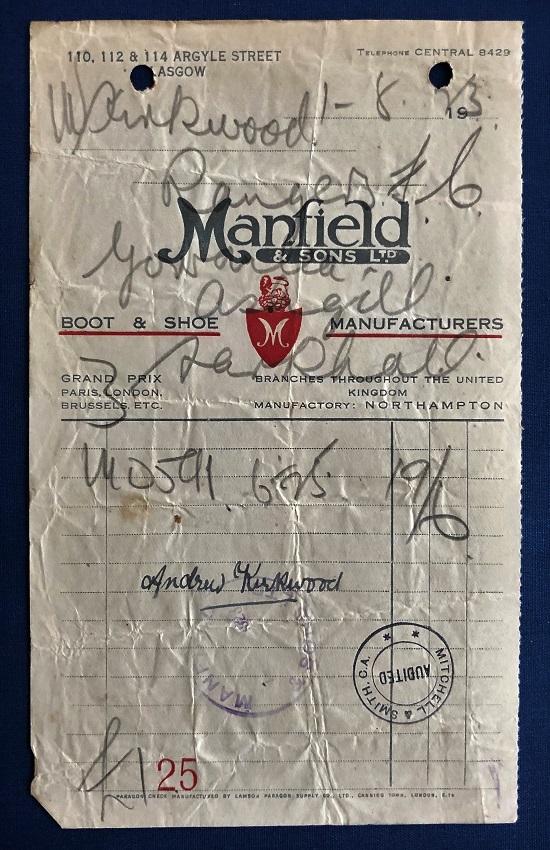 110, 112 & 114 ARGYLE STREET
GLASGOW
TELEPHONE CENTRAL 8429
Kirkwood 1-8. 19
Rangers F.C.
Manfield
& SONS LTD
M
BOOT & SHOE MANUFACTURERS
GRAND PRIX
PARIS, LONDON,
BRUSSELS, ETC.
BRANCHES THROUGHOUT THE UNITED
KINGDOM
MANUFACTORY: NORTHAMPTON
19/6
Andrew Kirkwood
MAN
MITCHELL & SMITH, C.A.
AUDITED
25
PARAGON CHECK MANUFACTURED BY LAMSON PARAGON SUPPLY CO., LTD., CANNING TOWN, LONDON, E.16